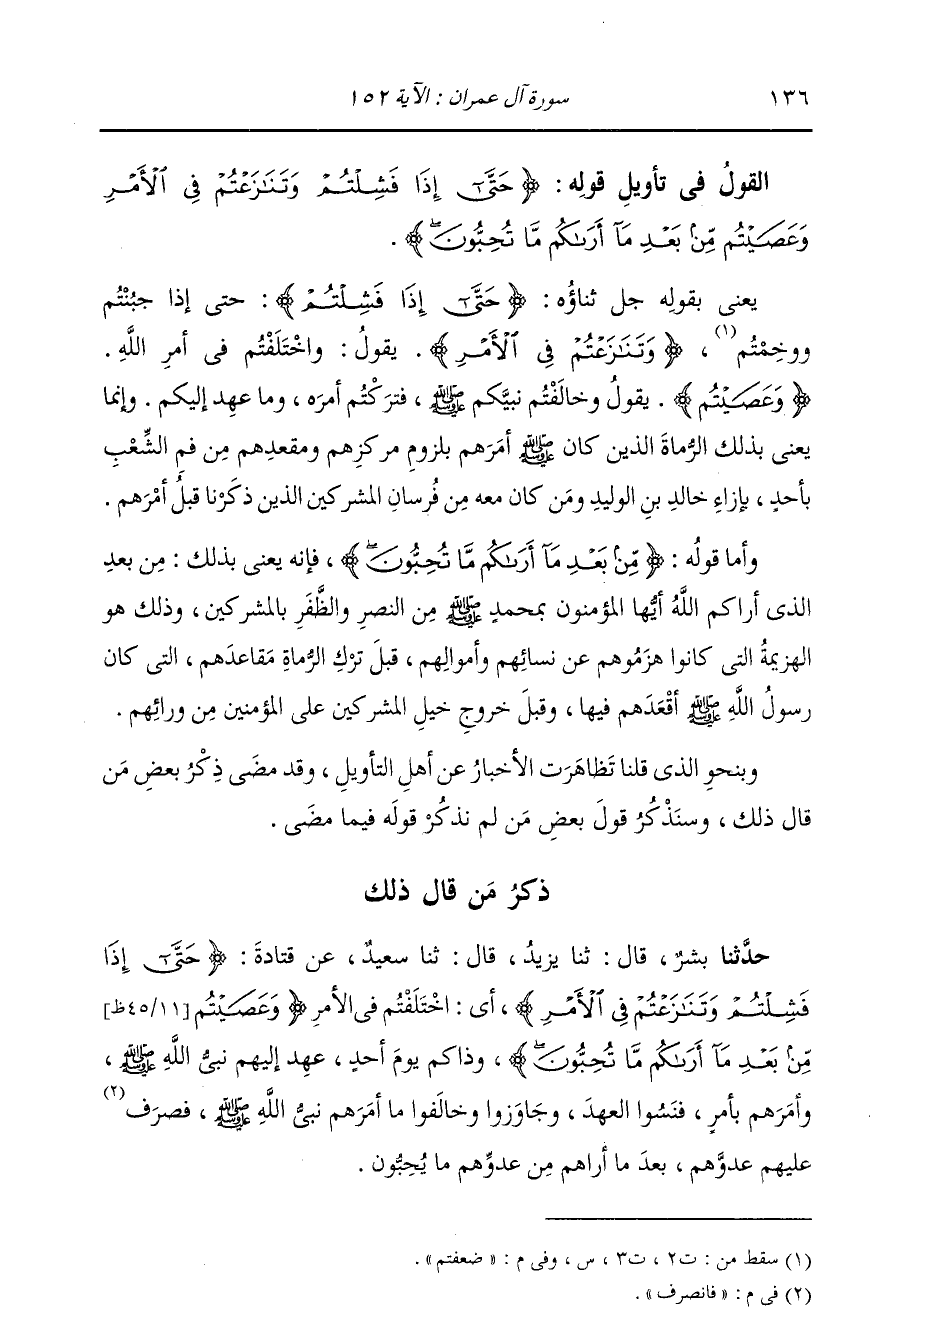 ١٣٦ سورة آل عمران : الآية ١٥٢
القولُ فى تأويلِ قوله : ﴿ حَتَّىٰٓ إِذَا فَشِلْتُمْ وَتَنَٰزَعْتُمْ فِى ٱلْأَمْرِ
وَعَصَيْتُم مِّنۢ بَعْدِ مَآ أَرَىٰكُم مَّا تُحِبُّونَ ۖ ﴾ .
يعنى بقولِه جل ثناؤُه : ﴿ حَتَّىٰٓ إِذَا فَشِلْتُمْ ﴾ : حتى إذا جبُنْتُم
ووخِمْتُم(١) ، ﴿ وَتَنَٰزَعْتُمْ فِى ٱلْأَمْرِ ﴾ . يقولُ : واخْتَلَفْتُم فى أمرِ اللَّهِ .
﴿ وَعَصَيْتُم ﴾ . يقولُ وخالَفْتُم نبيَّكم ﷺ ، فترَكْتُم أمرَه ، وما عهِد إليكم . وإنما
يعنى بذلك الرُّماةَ الذين كان ﷺ أمَرَهم بلزومِ مركزِهم ومقعدِهم مِن فمِ الشِّعْبِ
بأحدٍ ، بإزاءِ خالدِ بنِ الوليدِ ومَن كان معه مِن فُرسانِ المشركين الذين ذكَرْنا قبلُ أمْرَهم .
وأما قولُه : ﴿ مِّنۢ بَعْدِ مَآ أَرَىٰكُم مَّا تُحِبُّونَ ۖ ﴾ ، فإنه يعنى بذلك : مِن بعدِ
الذى أراكم اللَّهُ أيُّها المؤمنون بمحمدٍ ﷺ مِن النصرِ والظَّفَرِ بالمشركين ، وذلك هو
الهزيمةُ التى كانوا هزَمُوهم عن نسائِهم وأموالِهم ، قبلَ ترْكِ الرُّماةِ مَقاعدَهم ، التى كان
رسولُ اللَّهِ ﷺ أقْعَدَهم فيها ، وقبلَ خروجِ خيلِ المشركين على المؤمنين مِن ورائِهم .
وبنحوِ الذى قلنا تَظاهَرَت الأخبارُ عن أهلِ التأويلِ ، وقد مضَى ذِكْرُ بعضِ مَن
قال ذلك ، وسنَذْكُرُ قولَ بعضِ مَن لم نذكُرْ قولَه فيما مضَى .
ذكرُ مَن قال ذلك
حدَّثنا بشرٌ ، قال : ثنا يزيدُ ، قال : ثنا سعيدٌ ، عن قتادةَ : ﴿ حَتَّىٰٓ إِذَا
فَشِلْتُمْ وَتَنَٰزَعْتُمْ فِى ٱلْأَمْرِ ﴾ ، أى : اخْتَلَفْتُم فى الأمرِ ﴿ وَعَصَيْتُم [٤٥/١١ظ]
مِّنۢ بَعْدِ مَآ أَرَىٰكُم مَّا تُحِبُّونَ ۖ ﴾ ، وذاكم يومَ أحدٍ ، عهِد إليهم نبىُّ اللَّهِ ﷺ ،
وأمَرَهم بأمرٍ ، فنَسُوا العهدَ ، وجَاوَزوا وخالَفوا ما أمَرَهم نبىُّ اللَّهِ ﷺ ، فصرَف(٢)
عليهم عدوَّهم ، بعدَ ما أراهم مِن عدوِّهم ما يُحِبُّون .
(١) سقط من : ت٢ ، ت٣ ، س ، وفى م : « ضعفتم » .
(٢) فى م : « فانصرف » .